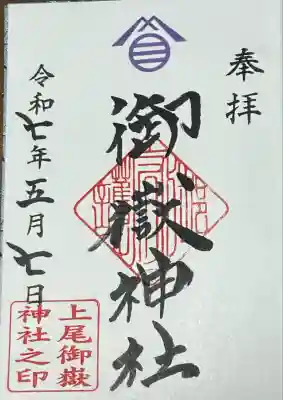 奉拝
御嶽神社
令和七年五月七日
上尾御嶽
神社之印